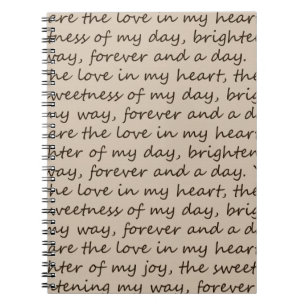 are the love in my heart
ness of my day, brighten
way, forever and a day.
he love in my heart, the
sweetness of my day, brig
my way, forever and a d
are the love in my heart
hter of my day, brighten
way, forever and a day.
he love in my heart, the
sweetness of my day, brig
my way, forever and a d
are the love in my heart
hter of my joy, the sweet
tening my way, forever